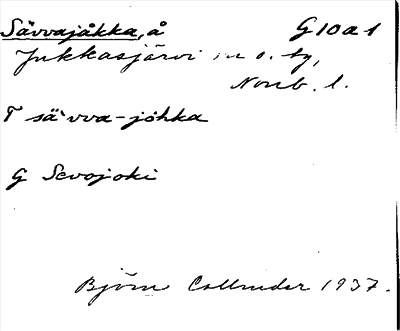 Sävvajåkka, å G10a1
Jukkasjärvi sn o. tg,
Norrb. l.
T sä`vva-jòhka
G Sevojoki
Björn Collinder 1937.